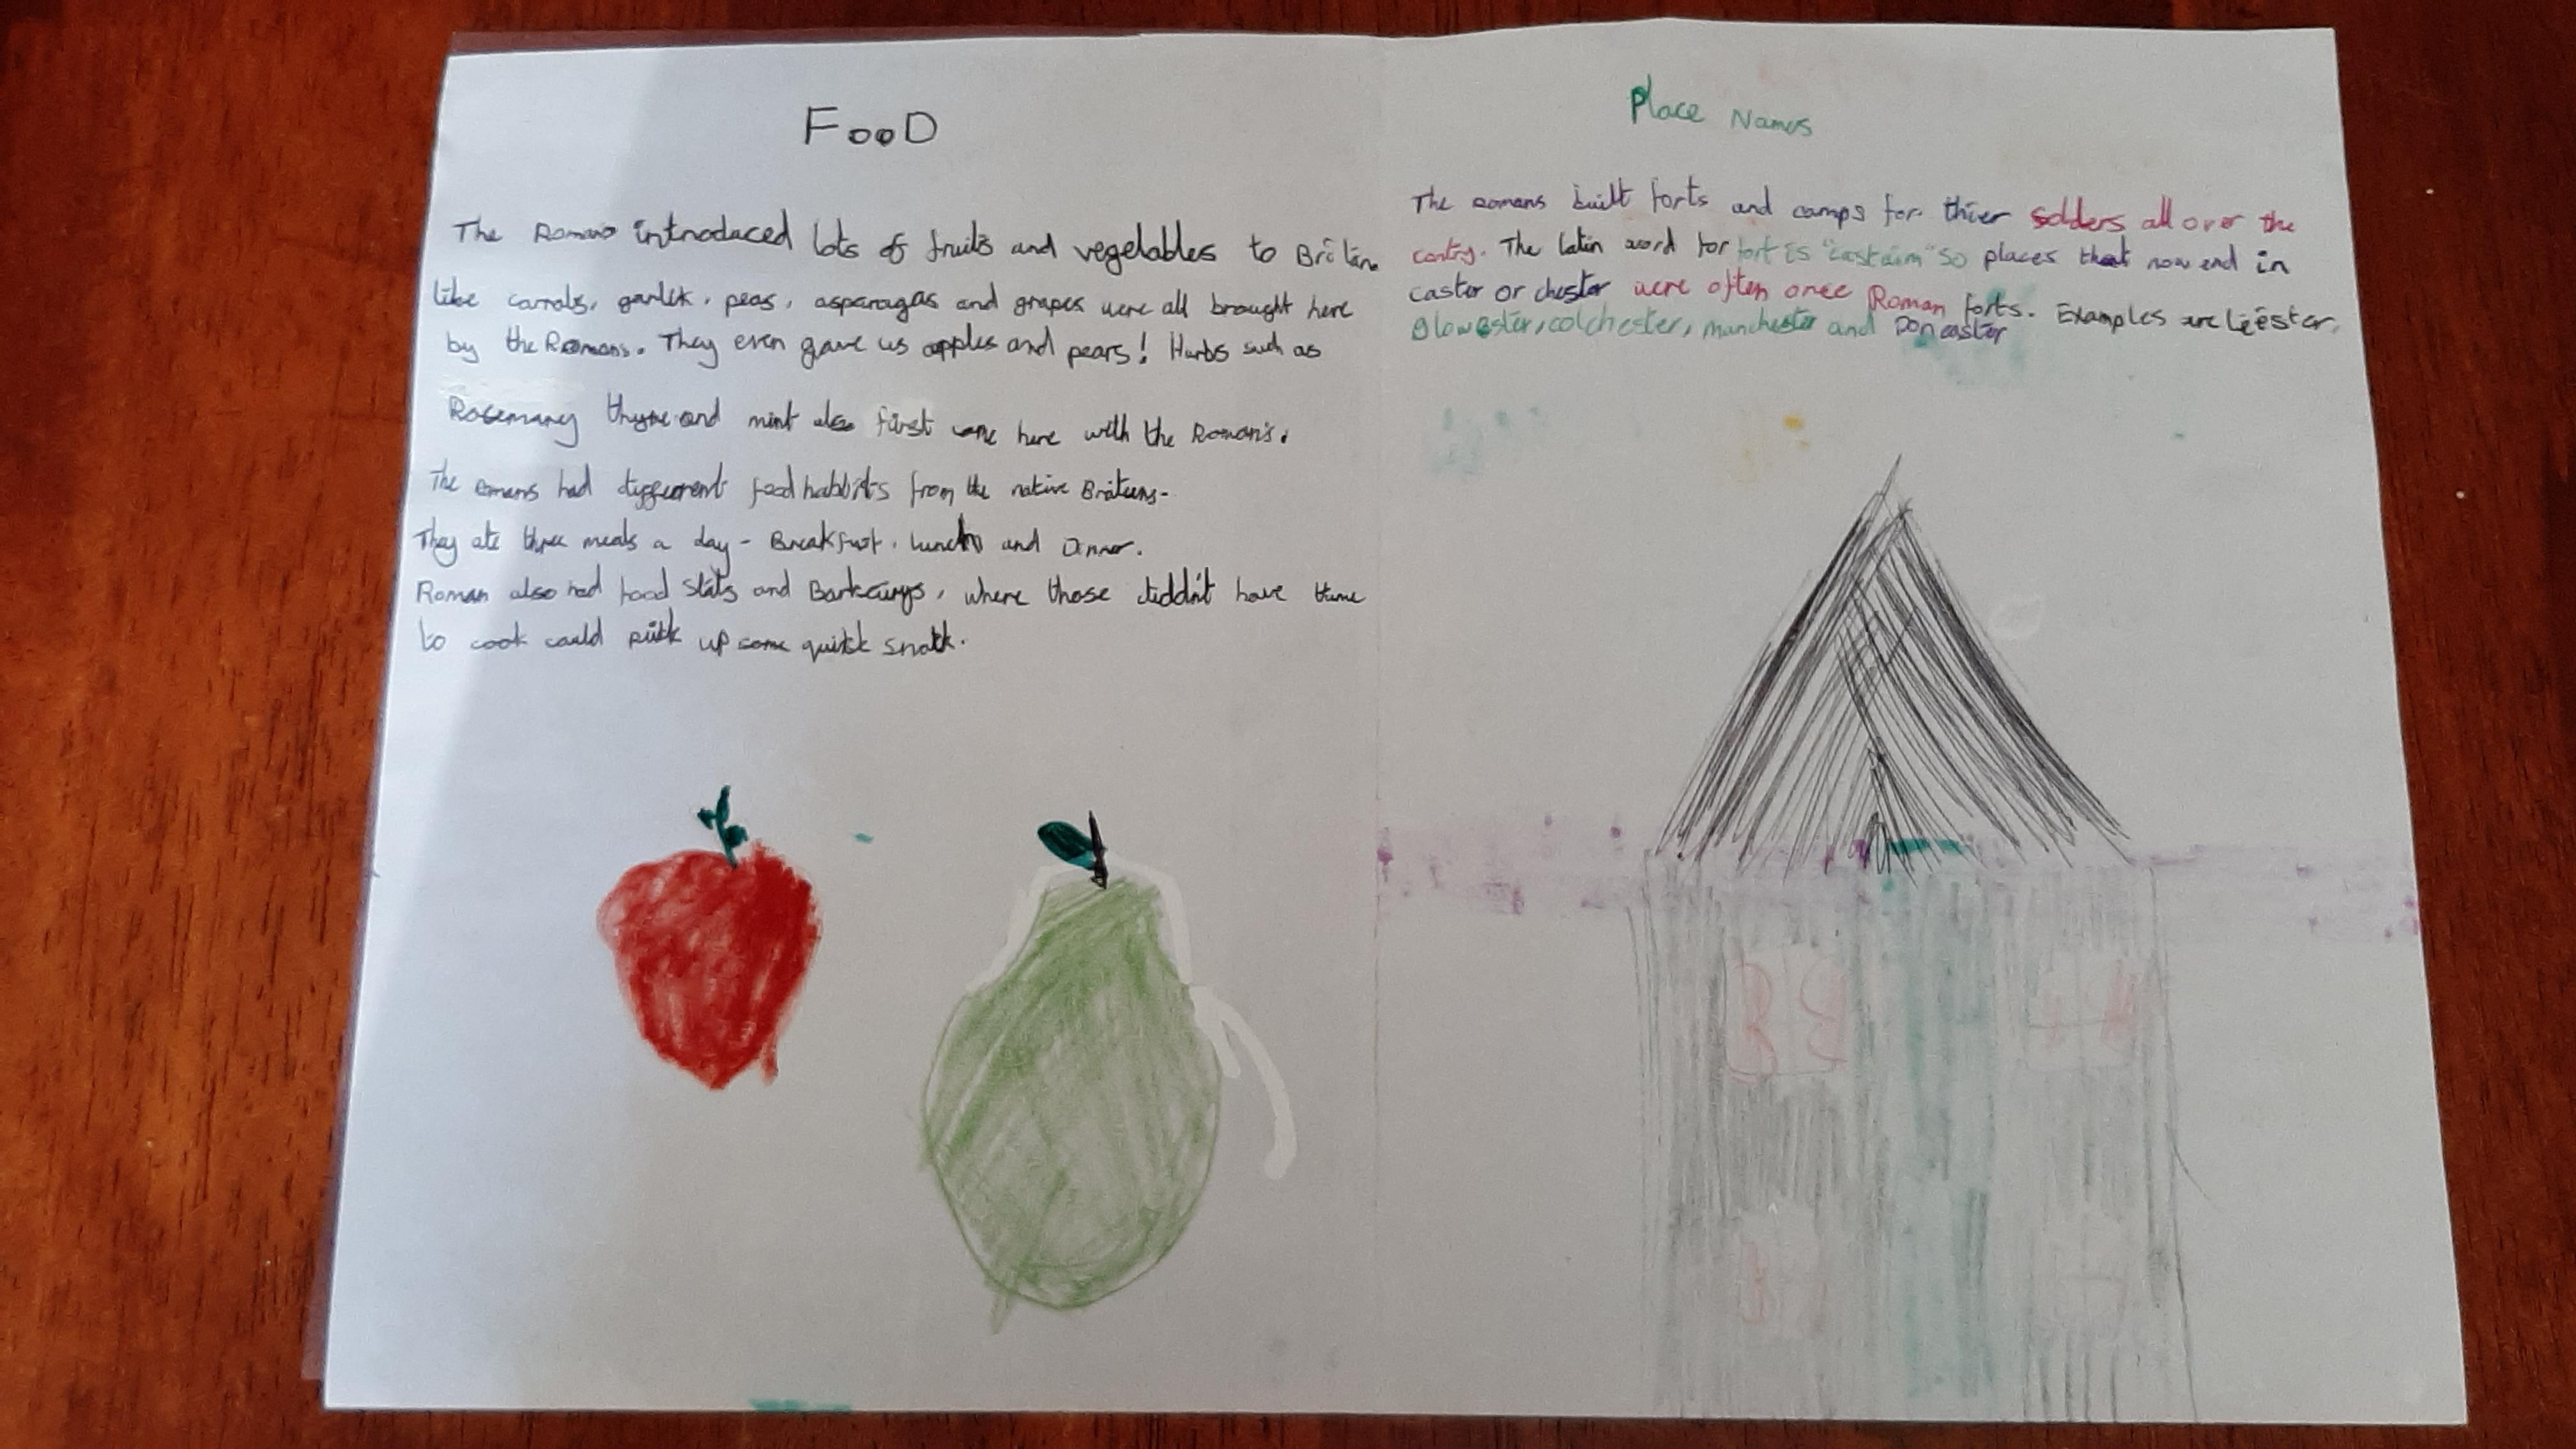 FooD
The Romans introduced lots of fruits and vegetables to Britain
like carrots, garlick, peas, asparagas and grapes were all brought here
by the Romans. They even gave us apples and pears! Hurbs such as
Rosemary thyme and mint also first came here with the Romans.
The romans had diggerent food habbits from the native
They ate three meals a day - Breakfust, lunch and Dinner.
Roman also had food stals and, where those diddn't have time
to cook could pick up some quick snack.
Place Names
The romans built forts and camps for thier solders all over the
contry. The latin word for fort is "castrim" so places that now end in
caster or chester were often once Roman forts. Examples are Leester,
Glowester, colchester, manchester and Doncaster